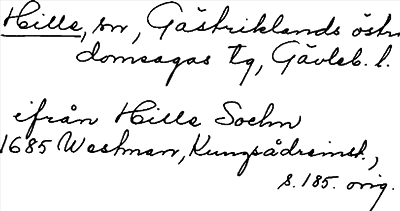 Hille, sn, Gästriklands östra
domsagas tg, Gävleb. l.
ifrån Hille Sochn
1685 Westman, Kungsådreinst.,
s. 185. orig.